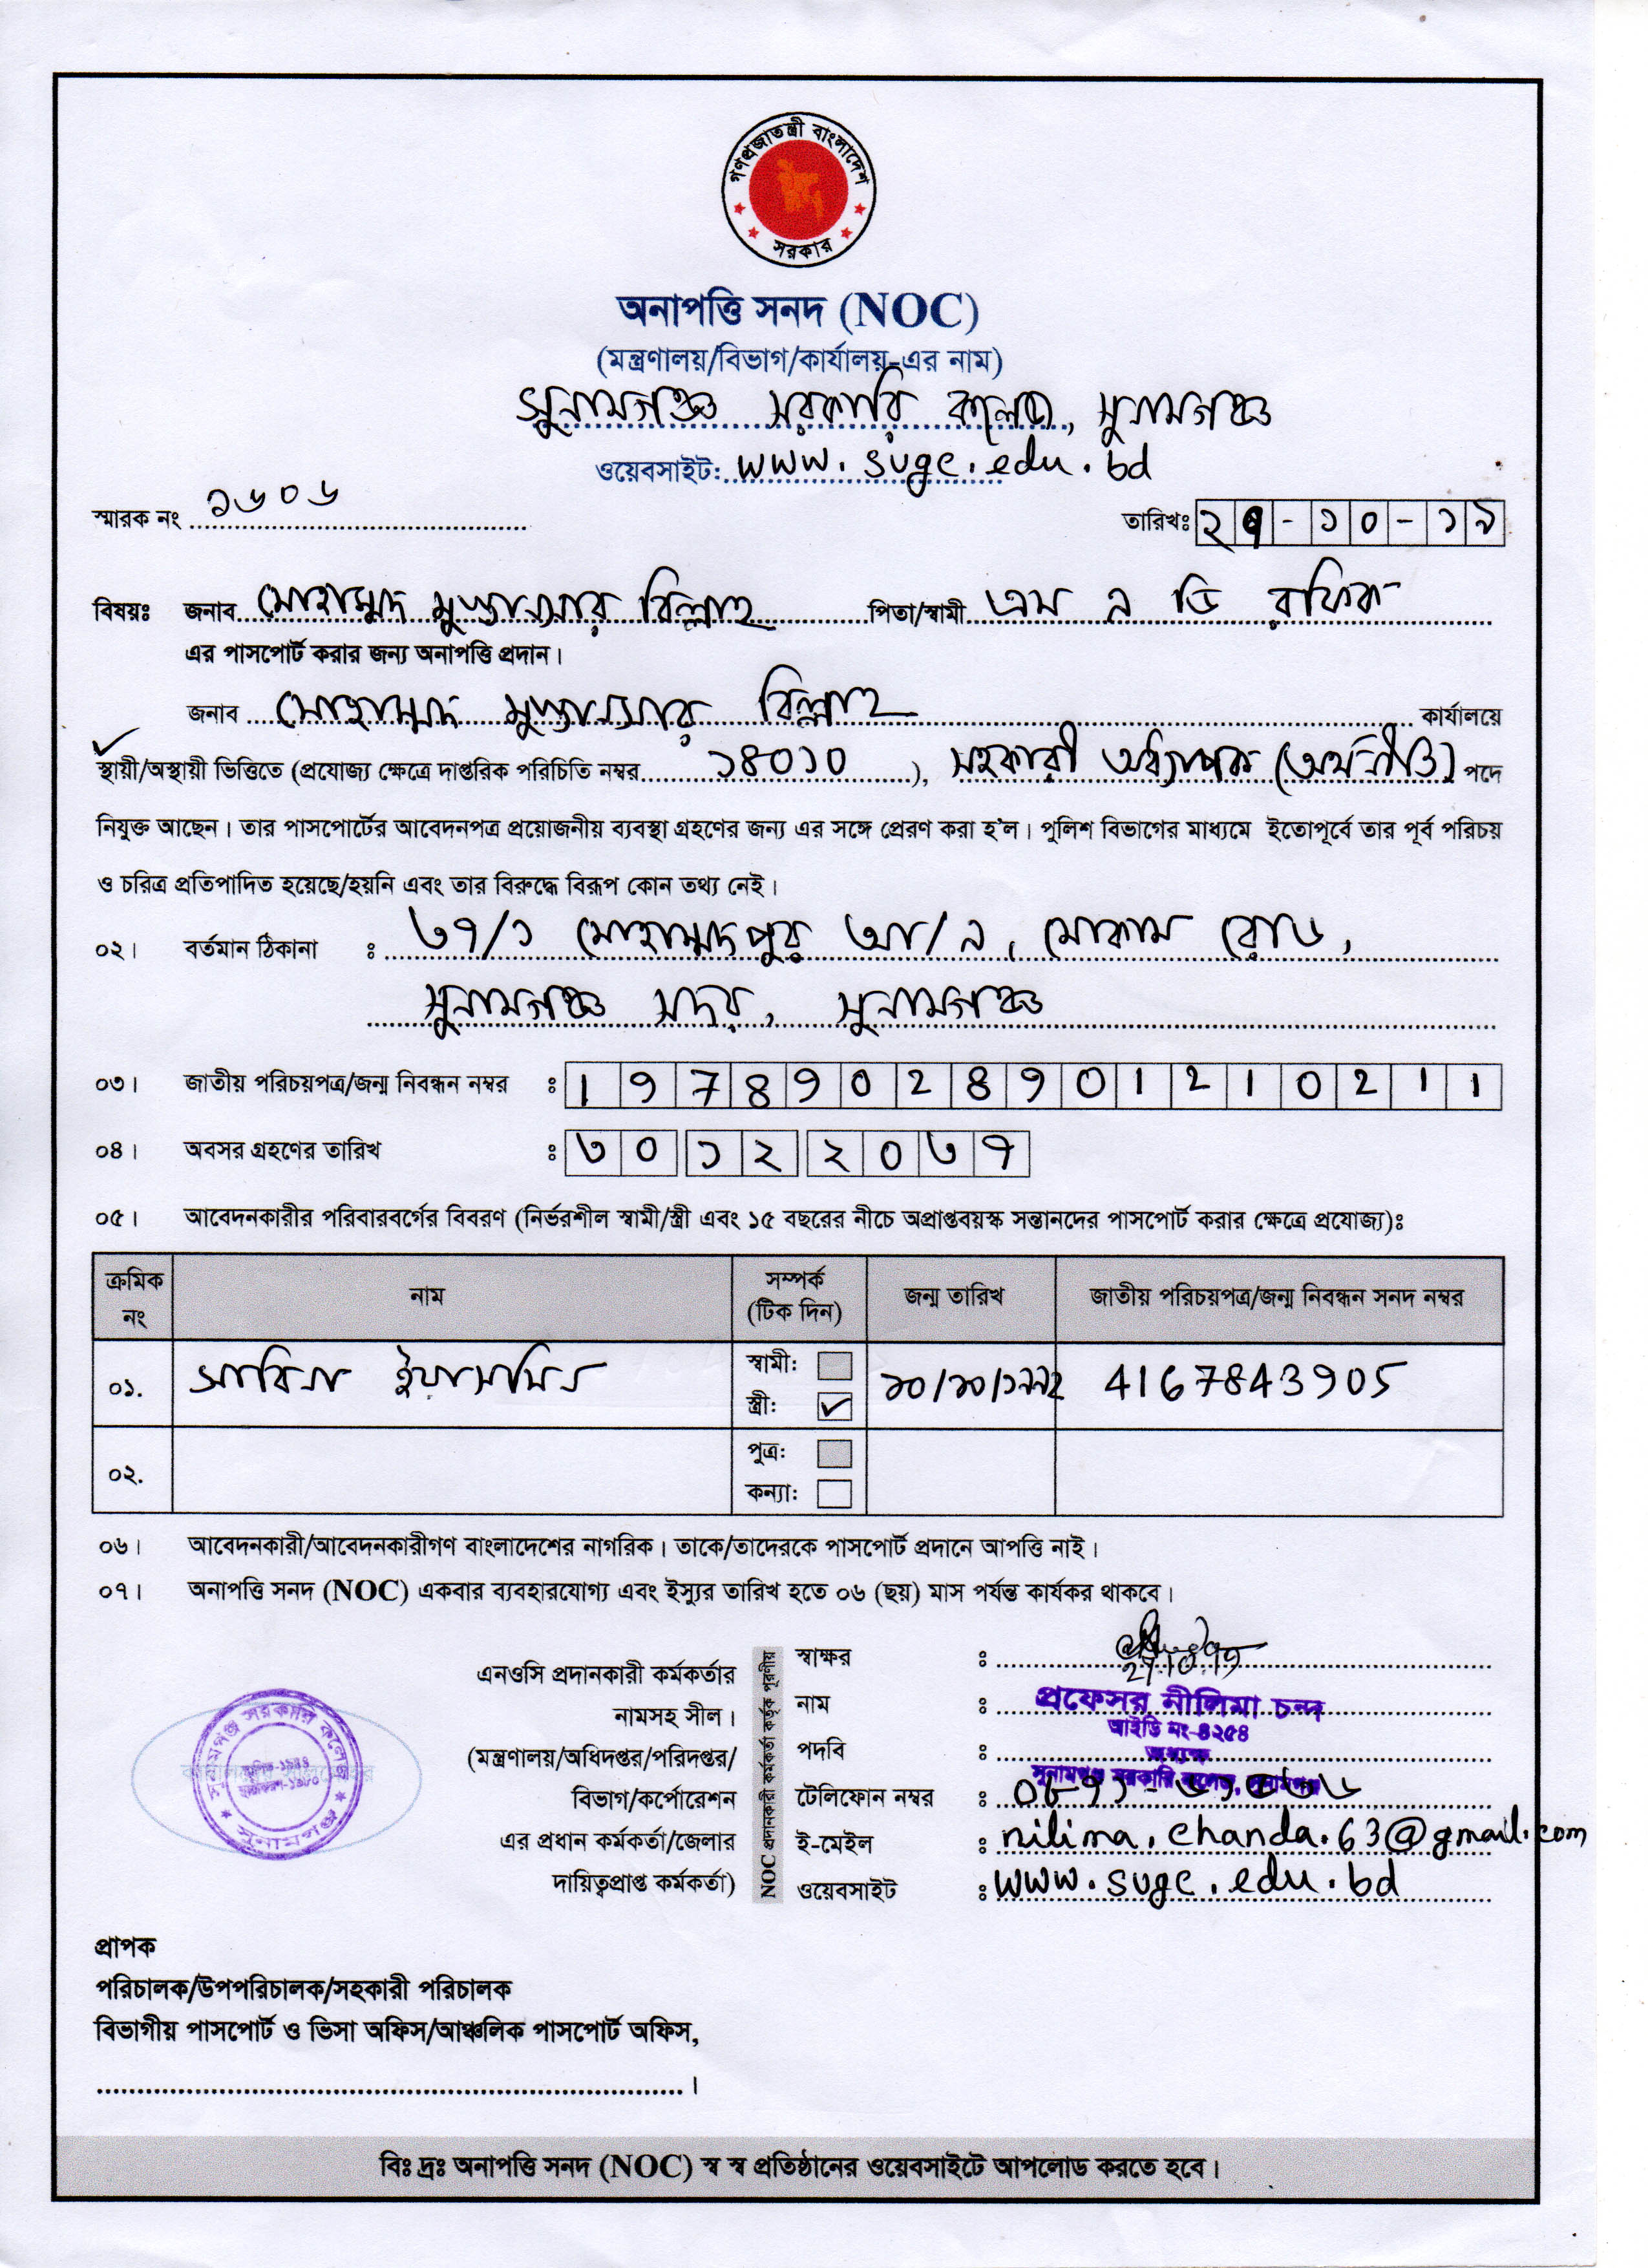 গণপ্রজাতন্ত্রী বাংলাদেশ
সরকার
অনাপত্তি সনদ (NOC)
(মন্ত্রণালয়/বিভাগ/কার্যালয়-এর নাম)
সুনামগঞ্জ সরকারি কলেজ, সুনামগঞ্জ
ওয়েবসাইট: www.sugc.edu.bd
স্মারক নং ১৬০৬
তারিখঃ ২৭-১০-১৯
বিষয়ঃ জনাব মোহাম্মদ মুস্তানসার বিল্লাহ পিতা/স্বামী এম এ ডি রফিক
এর পাসপোর্ট করার জন্য অনাপত্তি প্রদান।
জনাব মোহাম্মদ মুস্তানসার বিল্লাহ কার্যালয়ে
স্থায়ী/অস্থায়ী ভিত্তিতে (প্রযোজ্য ক্ষেত্রে দাপ্তরিক পরিচিতি নম্বর ১৪০১০), সহকারী অধ্যাপক (অর্থনীতি) পদে
নিযুক্ত আছেন। তার পাসপোর্টের আবেদনপত্র প্রয়োজনীয় ব্যবস্থা গ্রহণের জন্য এর সঙ্গে প্রেরণ করা হ'ল। পুলিশ বিভাগের মাধ্যমে ইতোপূর্বে তার পূর্ব পরিচয়
ও চরিত্র প্রতিপাদিত হয়েছে/হয়নি এবং তার বিরুদ্ধে বিরূপ কোন তথ্য নেই।
০২। বর্তমান ঠিকানা : ৩৭/১ মোহাম্মদপুর আ/এ, মোকাম রোড,
সুনামগঞ্জ সদর, সুনামগঞ্জ
০৩। জাতীয় পরিচয়পত্র/জন্ম নিবন্ধন নম্বর : 19789028901210211
০৪। অবসর গ্রহণের তারিখ : ৩০ ১২ ২০৩৭
০৫। আবেদনকারীর পরিবারবর্গের বিবরণ (নির্ভরশীল স্বামী/স্ত্রী এবং ১৫ বছরের নীচে অপ্রাপ্তবয়স্ক সন্তানদের পাসপোর্ট করার ক্ষেত্রে প্রযোজ্য)ঃ
ক্রমিক নং নাম সম্পর্ক (টিক দিন) জন্ম তারিখ জাতীয় পরিচয়পত্র/জন্ম নিবন্ধন সনদ নম্বর
০১. সাবিনা ইয়াসমিন স্বামী: স্ত্রী: ১০/১০/১৯৯২ 4167843905
০২. পুত্র: কন্যা:
০৬। আবেদনকারী/আবেদনকারীগণ বাংলাদেশের নাগরিক। তাকে/তাদেরকে পাসপোর্ট প্রদানে আপত্তি নাই।
০৭। অনাপত্তি সনদ (NOC) একবার ব্যবহারযোগ্য এবং ইস্যুর তারিখ হতে ০৬ (ছয়) মাস পর্যন্ত কার্যকর থাকবে।
এনওসি প্রদানকারী কর্মকর্তার
নামসহ সীল।
(মন্ত্রণালয়/অধিদপ্তর/পরিদপ্তর/
বিভাগ/কর্পোরেশন
এর প্রধান কর্মকর্তা/জেলার
দায়িত্বপ্রাপ্ত কর্মকর্তা)
সুনামগঞ্জ সরকারি কলেজ
সুনামগঞ্জ
NOC প্রদানকারী কর্মকর্তা কর্তৃক পূরণীয়
স্বাক্ষর : 27.10.19
নাম : প্রফেসর নীলিমা চন্দ
আইডি নং-৪২৫৪
পদবি : অধ্যক্ষ
সুনামগঞ্জ সরকারি কলেজ, সুনামগঞ্জ
টেলিফোন নম্বর :
ই-মেইল : nilima.chanda.63@gmail.com
ওয়েবসাইট : www.sugc.edu.bd
প্রাপক
পরিচালক/উপপরিচালক/সহকারী পরিচালক
বিভাগীয় পাসপোর্ট ও ভিসা অফিস/আঞ্চলিক পাসপোর্ট অফিস,
বিঃ দ্রঃ অনাপত্তি সনদ (NOC) স্ব স্ব প্রতিষ্ঠানের ওয়েবসাইটে আপলোড করতে হবে।